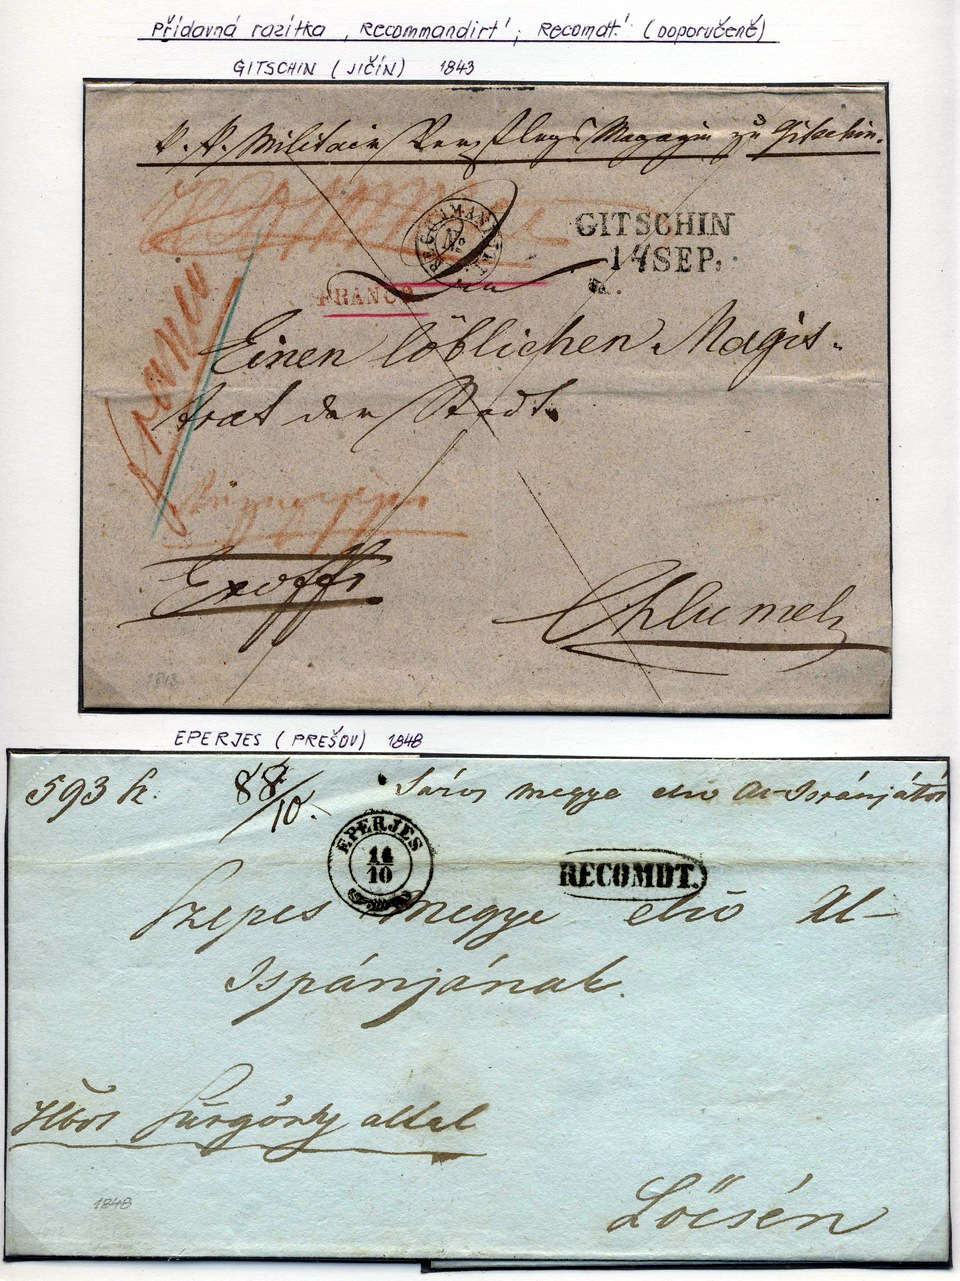 Přídavná razítka ‚Recommandirt‘; Recomdt.‘ (Doporučeně)
GITSCHIN (JIČÍN) 1843
K. K. Militair Verpflegs Magazin zu Gitschin.
RECOMMANDIRT
GITSCHIN
14 SEP.
FRANCO.
An
Einen löblichen Magis-
trat der Stadt
Franco
Exoffo
Chlumetz
1843
EPERJES (PREŠOV) 1848
593 k. 88/10. Sáros megye első Al-Ispánjától
EPERJES
14
10
RECOMDT.
Szepes megye első Al-
Ispánjának.
által
1848
Lőcsén